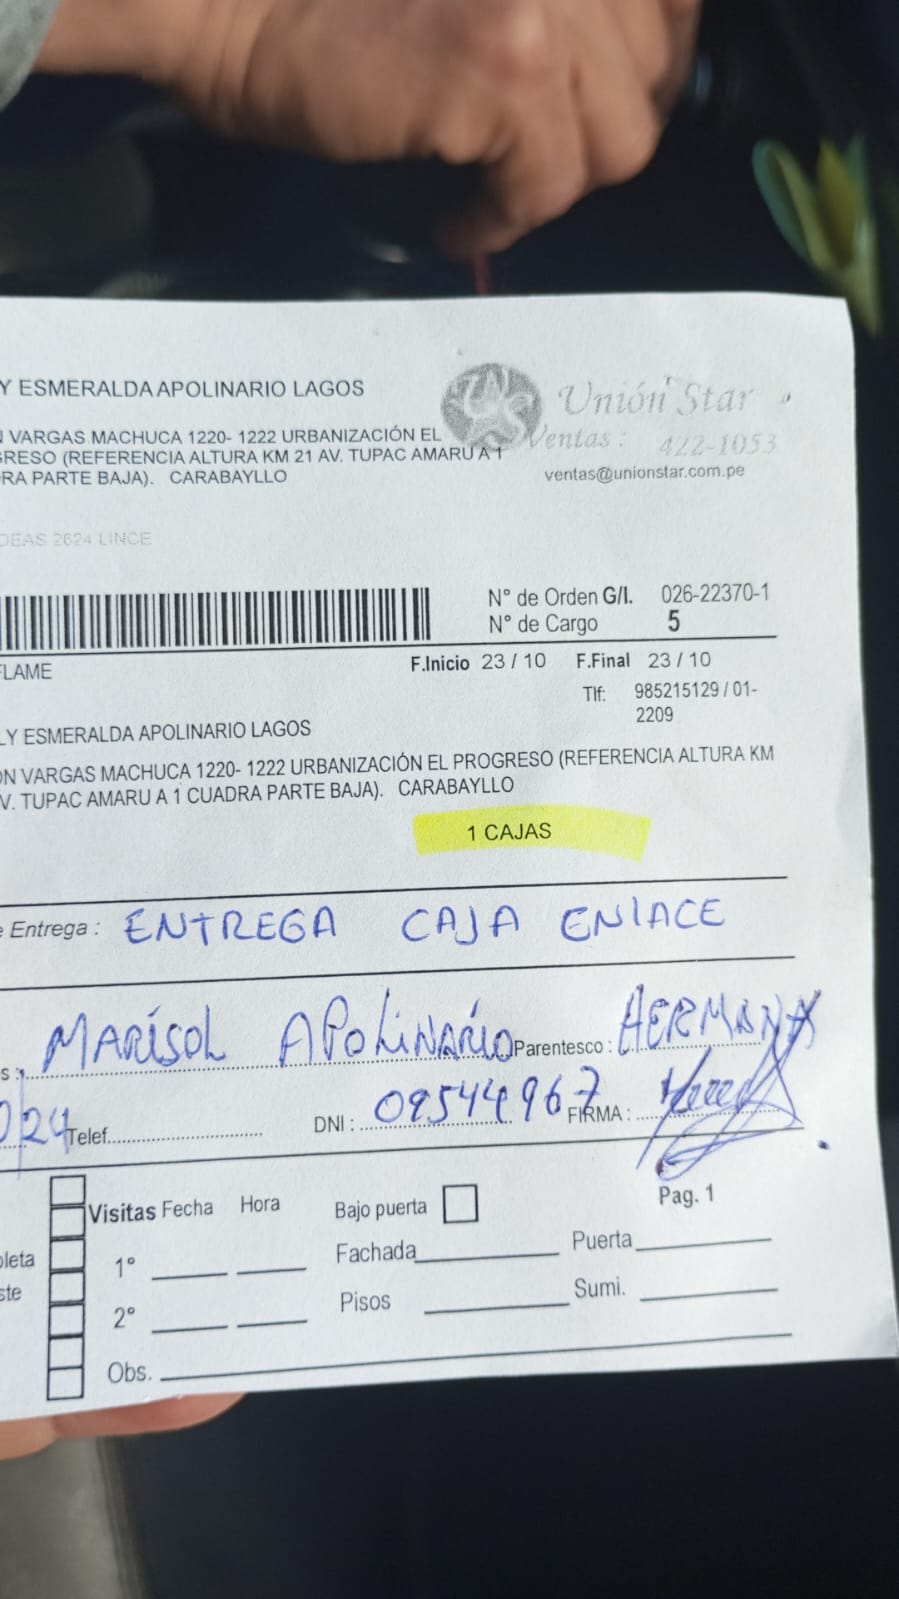 Y ESMERALDA APOLINARIO LAGOS
Unión Star
N VARGAS MACHUCA 1220- 1222 URBANIZACIÓN EL
Ventas : 422-1053
GRESO (REFERENCIA ALTURA KM 21 AV. TUPAC AMARU A 1
RA PARTE BAJA). CARABAYLLO
ventas@unionstar.com.pe
DEAS 2624 LINCE
N° de Orden G/I. 026-22370-1
N° de Cargo 5
FLAME
F.Inicio 23 / 10 F.Final 23 / 10
Tlf: 985215129 / 01-
2209
LY ESMERALDA APOLINARIO LAGOS
ON VARGAS MACHUCA 1220- 1222 URBANIZACIÓN EL PROGRESO (REFERENCIA ALTURA KM
V. TUPAC AMARU A 1 CUADRA PARTE BAJA). CARABAYLLO
1 CAJAS
e Entrega : ENTREGA CAJA ENLACE
s : MARISOL APOLINARIO Parentesco : HERMANA
24 Telef. DNI : 09544967 FIRMA :
Visitas Fecha Hora Bajo puerta Pag. 1
pleta 1° Fachada Puerta
ste 2° Pisos Sumi.
Obs.